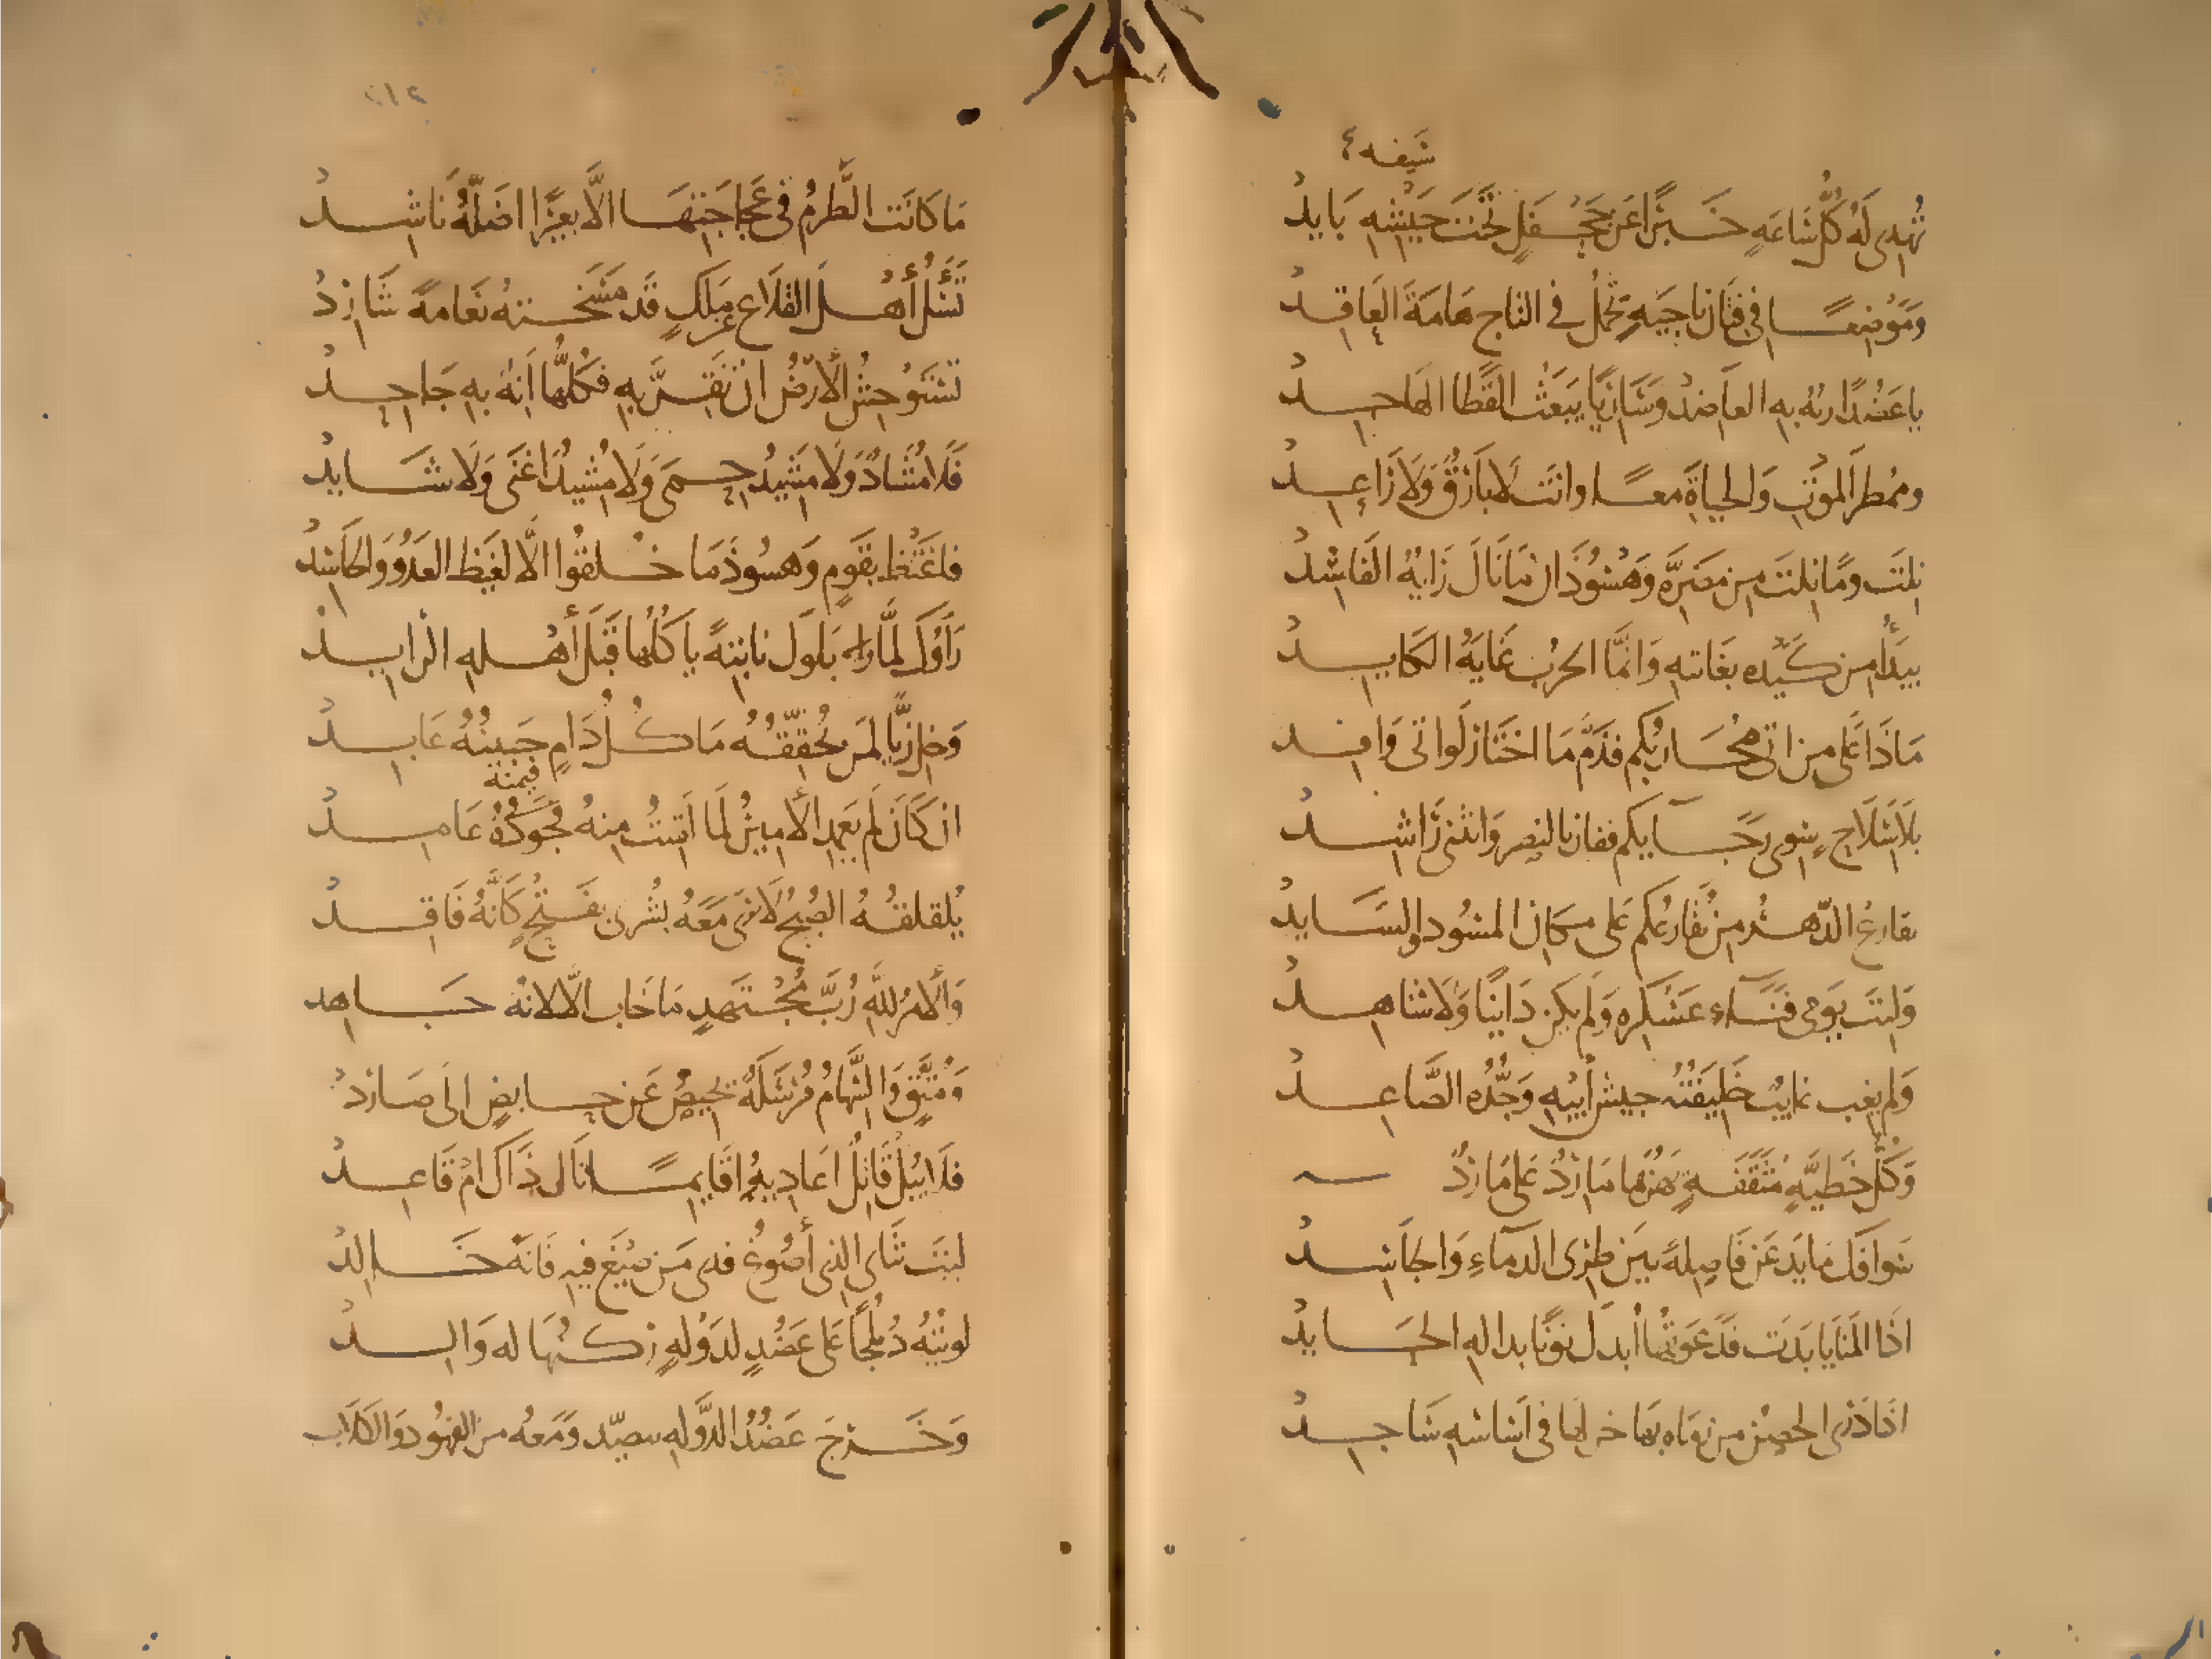 سيفه
تُهدِى لَهُ كُلُّ سَاعَةٍ خَبَرًا عَن جَحْفَلٍ تَحْتَ سَيْفِهِ بَايدُ
وَمَوْضِعًا فِى فِتَانِ نَاجِيَةٍ يَحْمِلُ فى التاجِ هَامَةَ العَاقِدُ
يا عَضُدًا ربُّه بِهِ العاضِدُ وَسَارِيًا يَبعَثُ القَطا الهَاجِدُ
وممُطرَ المَوْتِ وَالحياةِ معًا وانتَ لا بَارقٌ وَلا رَاعِدُ
نِلتَ ومَا نِلتَ مِن مَضَرَّةِ وَهْسُوذَانَ مَا نَالَ رَايُهُ الفَاسِدُ
يبدَأُ مِن كَيْدِه بغَايتهِ وَانمَّا الحربُ غَايَةُ الكَايدُ
مَاذَا عَلى مَن اتى مُحَاربُكم فذَمَّ مَا اختَارَ لَو اتى وَافِدُ
بلَا سِلَاحٍ سِوى رَجَايكم ففازَ بالنصرِ وَانثنى رَاشِدُ
يقارعُ الدّهرُ مَن يُقَارعُكم عَلى مكَانِ المسُودِ والسَايدُ
وَليتَ يَومى فَنَاءِ عَسْكرِهِ وَلَم تكن دَانيًا وَلَا شَاهِدُ
وَلم يغِب غايبٌ خَليفَتُهُ جيشُ أبيْهِ وَجَدُّهُ الصَّاعِدُ
وَكُلُّ خَطيَّةٍ مُثَقَّفَةٍ يَهُزُّها مَارِدٌ عَلى مَاردُ
سَوافكٌ مَا يَدَعنَ فَاصِلةً بينَ طرى الدمَاءِ وَالجَاسِدُ
اذَا المَنَايَا بَدَت فدَعوَتُهَا أُبدلَ نونًا بدالِهِ الحَايدُ
اذَا دَرَى الحصنُ من رَمَاه بهَا خرَّ لهَا فى اسَاسِهِ سَاجِدُ
مَا كَانَت الطَّرمُ فى عَجَاجَتِهَا الَّا بعِيرًا اضَلَّهُ نَاشِدُ
تَسْأَلُ أهْلَ القلَاعِ عَن مَلكٍ قَد مَسَخَتهُ نَعَامةً شَارِدُ
تَسْتَوحِشُ الأرْضُ ان تُقِرَّ بهِ فكُلُّهَا اَنهُ بهِ جَاحِدُ
فَلَا مُشَادٌ وَلَا مَشِيدُ حِمَى وَلَا مُشِيدٌ اغنَى وَلَا شَايدُ
فاغتَظ بقَومٍ وَهسُوذَ مَا خُلقُوا الَّا لغَيظِ العَدُوِّ وَالحَاسِدُ
رَأَوْكَ لمَّا بَلوكَ نابتةً يَاكُلُها قَبلَ أهْلهِ الرايدُ
وَخلِّ زِيًّا لمَن يُحقِّقُهُ مَا كُلُّ دَامٍ جَبينُهُ عَابدُ
فيمنه
ان كَانَ لم يَعمِدِ الأميرُ لمَا لَقيتُ مِنهُ فجَوْدُهُ عَامِدُ
يُقلقلهُ الصُّبحُ لَا تَرَى مَعَهُ بُشرى بفَتحٍ كَانَّهُ فَاقِدُ
وَالأمرُ للَّهِ رُبَّ مُجْتَهدٍ مَا خَابَ الَّا لانَّهُ جَاهد
وَمُتَّقٍ وَالسِّهَامُ مُرْسَلَةٌ تحيصُ عَن حَابضٍ الَى صَاردُ
فلَا يُبَلْ قَاتِلٌ اعَادِيهُ اقَايمًا نَالَ ذَاكَ اَمْ قَاعِدُ
ليتَ ثنَاى الذِى أصُوغُ فدى مَن صيْغَ فيهِ فَانّه خَالدُ
لويتُهُ دُملُجًا عَلَى عَضُدٍ لدَوْلةٍ ركنُهَا له وَالِدُ
وَخَرجَ عَضُدُ الدَّوْلهِ يتصيّد وَمَعَهُ من الفهُودِ وَالكلَابِ